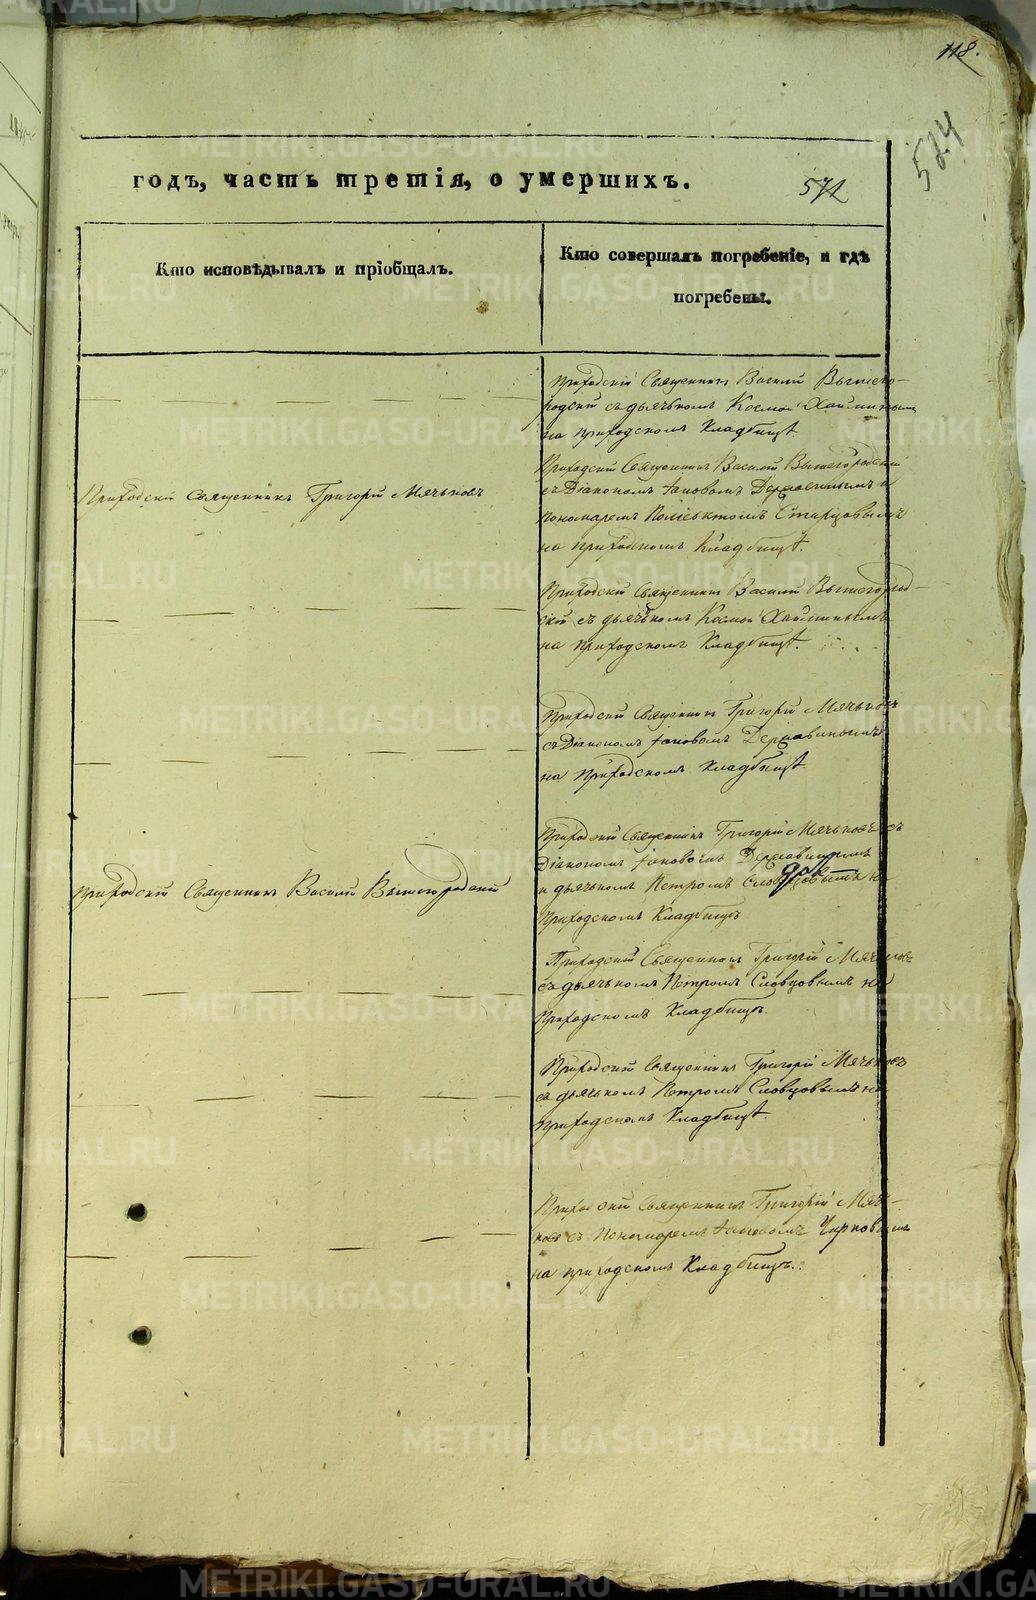 118.
524
годъ, часть третія, о умершихъ.
572
Кто исповѣдывалъ и пріобщалъ.
Кто совершалъ погребеніе, и гдѣ
погребены.
Приходскій Священникъ Василій Вышего-
родскій съ дьячькомъ Космой
на приходскомъ Кладбищѣ
Приходскій Священникъ Григорій Мячьковъ
Приходскій Священникъ Василій Вышегородскій
съ Діакономъ Іаковомъ Державинымъ и
пономаремъ Поліевктомъ Старцовымъ
на приходскомъ Кладбищѣ.
Приходскій Священникъ Василій Вышегород-
скій съ дьячькомъ Космой
на приходскомъ Кладбищѣ.
Приходскій Священникъ Григорій Мячьковъ
съ Діакономъ Іаковомъ Державинымъ
на Приходскомъ Кладбищѣ
Приходскій Священникъ Григорій Мячьковъ съ
Діакономъ Іаковомъ Державинымъ
и дьячькомъ Петромъ Словцовымъ на
Приходскомъ Кладбищѣ
Приходскій Священникъ Василій Вышегородскій
Приходскій Священникъ Григорій Мячьковъ
съ дьячькомъ Петромъ Словцовымъ на
Приходскомъ Кладбищѣ.
Приходскій Священникъ Григорій Мячьковъ
съ дьячькомъ Петромъ Словцовымъ на
приходскомъ Кладбищѣ.
Приходскій Священникъ Григорій Мячь-
ковъ съ Пономаремъ Іаковомъ
на приходскомъ Кладбищѣ.
METRIKI.GASO-URAL.RU